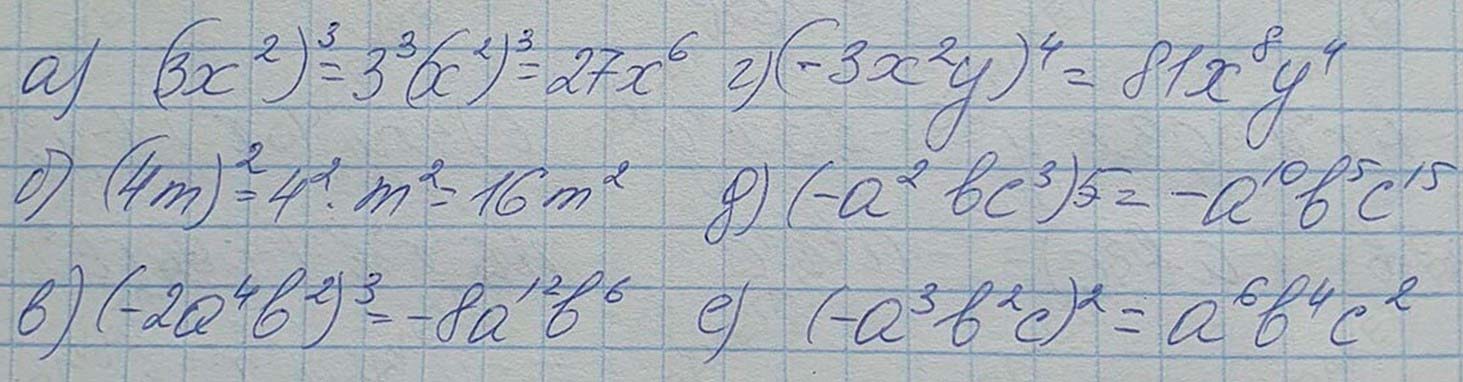 а) (3x²)³ = 3³(x²)³ = 27x⁶ г) (-3x²y)⁴ = 81x⁸y⁴
б) (4m)² = 4² · m² = 16m² д) (-a²bc³)5 = -a¹⁰b⁵c¹⁵
в) (-2a⁴b²)³ = -8a¹²b⁶ е) (-a³b²c)² = a⁶b⁴c²